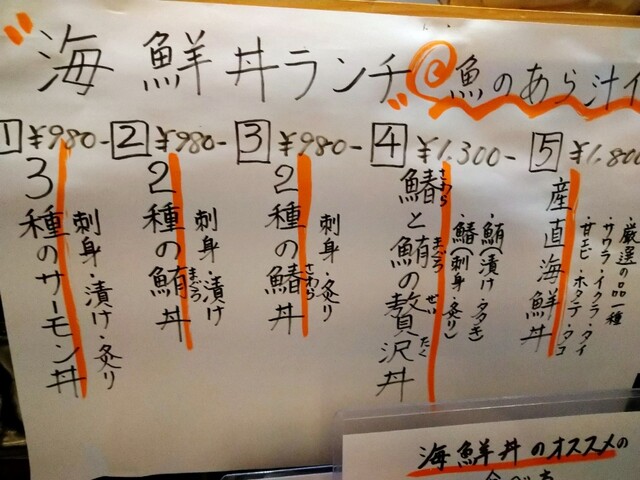 海鮮丼ランチ
@魚のあら汁
1 ¥980-
3種のサーモン丼
刺身・漬け・炙り
2 ¥980-
2種の鮪丼
まぐろ
刺身・漬け
3 ¥980-
2種の鰆丼
さわら
刺身・炙り
4 ¥1,300-
鰆と鮪の贅沢丼
さわら まぐろ ぜいたく
・鮪(漬け・タタキ)
・鰆(刺身・炙り)
5 ¥1,800
産直海鮮丼
厳選の品一種
・サワラ・イクラ・タイ
・甘エビ・ホタテ・タコ
海鮮丼のオススメの